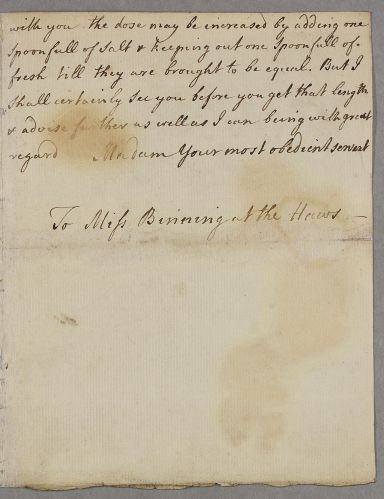 with you the dose may be increased by adding one
spoonfull of salt & keeping out one spoonfull of
fresh till they are brought to be equal. But I
shall certainly see you before you get that length
& advise further as well as I can being with great
regard Madam Your most obedient servant
To Miss Binning at the Haws